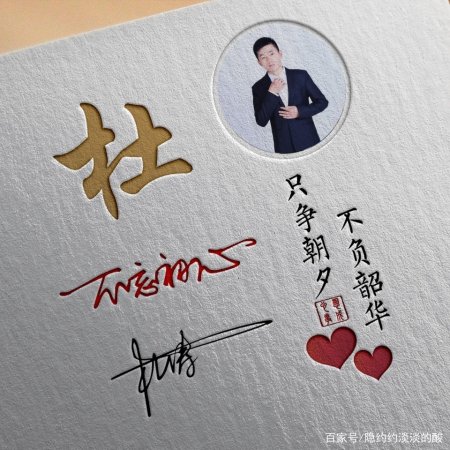 杜
只争朝夕
不负韶华
不忘初心
百家号/隐约约淡淡的酸